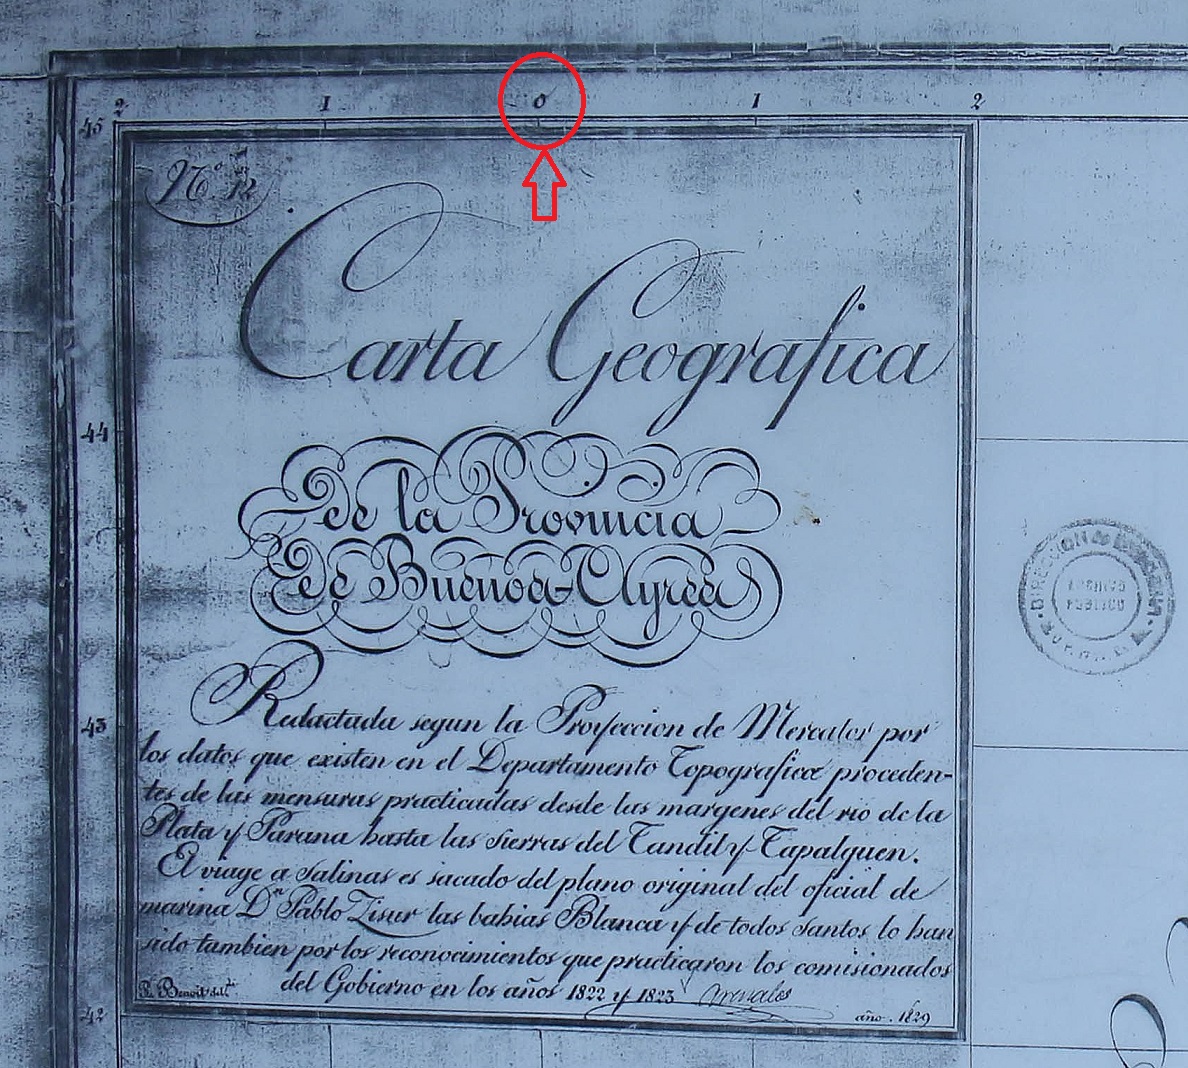 2 1 0 1 2
45
Nº 12
Carta Geografica
44
de la Provincia
de Buenos-Ayres
43
Redactada segun la Proyeccion de Mercator por
los datos que existen en el Departamento Topografico proceden-
tes de las mensuras practicadas desde las margenes del rio de la
Plata y Parana hasta las sierras del Tandil y Tapalquen.
El viage a Salinas es sacado del plano original del oficial de
marina Dn Pablo Zisur las bahias Blanca y de todos Santos lo han
sido tambien por los reconocimientos que practicaron los comisionados
del Gobierno en los años 1822 y 1823
Arenales
P. Benoit del.
año 1829
42
DIRECCION DE